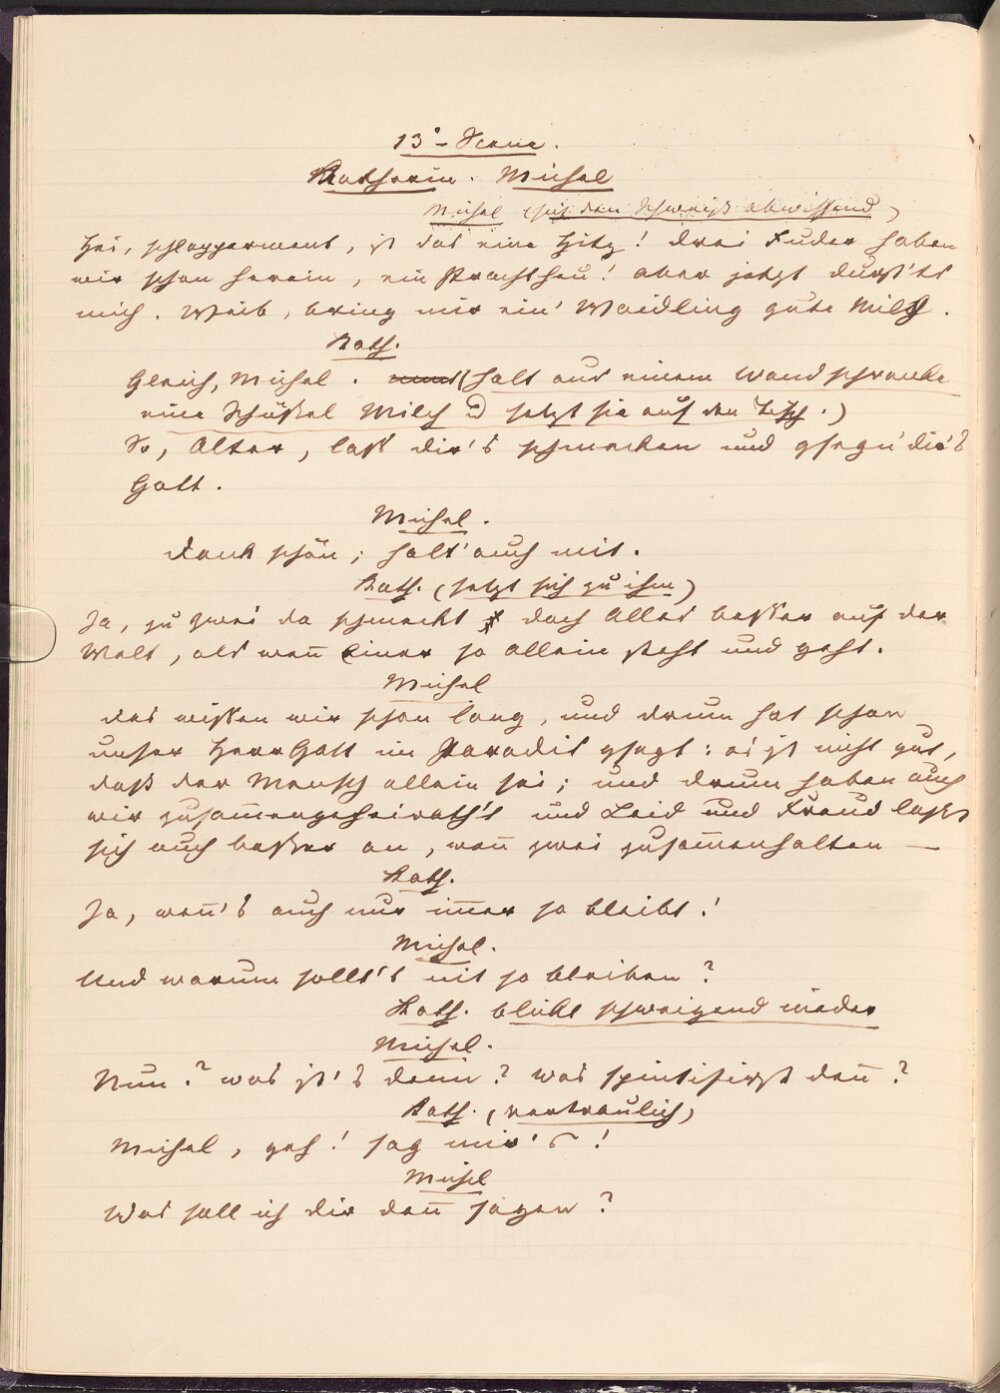 13e Scene.
Katharin. Michel
Michel (sich den Schweiß abwischend)
Hei, schlapperment, ist das eine Hitz! Drei Fuder haben
wir schon herein, ein Prachtheu! Aber jetzt durst's
mich. Weib, bring mir ein' Waidling gute Milch.
Kath.
Gleich, Michel. (holt aus einem Wandschranke
eine Schüssel Milch u setzt sie auf den Tisch.)
So, Alter, laß dir's schmecken und gsegn' dir's
Gott.
Michel.
Dank schön; halt' auch mit.
Kath. (setzt sich zu ihm)
Ja, zu zwei da schmeckt doch Alles besser auf der
Welt, als wen̄ Einer so allein steht und geht.
Michel
Das wissen wir schon lang, und drum hat schon
unser Herr Gott im Paradis gsagt: es ist nicht gut,
daß der Mensch allein sei; und drum haben auch
wir zusam̄engeheirath't und Leid und Freud laßt
sich auch besser an, wen̄ zwei zusam̄enhalten —
Kath.
Ja, wen̄'s auch nur im̄er so bleibt!
Michel.
Und warum sollt's nit so bleiben?
Kath. blickt schweigend nieder
Michel.
Nun? was ist's denn? was spintisirst den̄?
Kath. (vertraulich)
Michel, geh! sag mir's!
Michel
Was soll ich dir den̄ sagen?